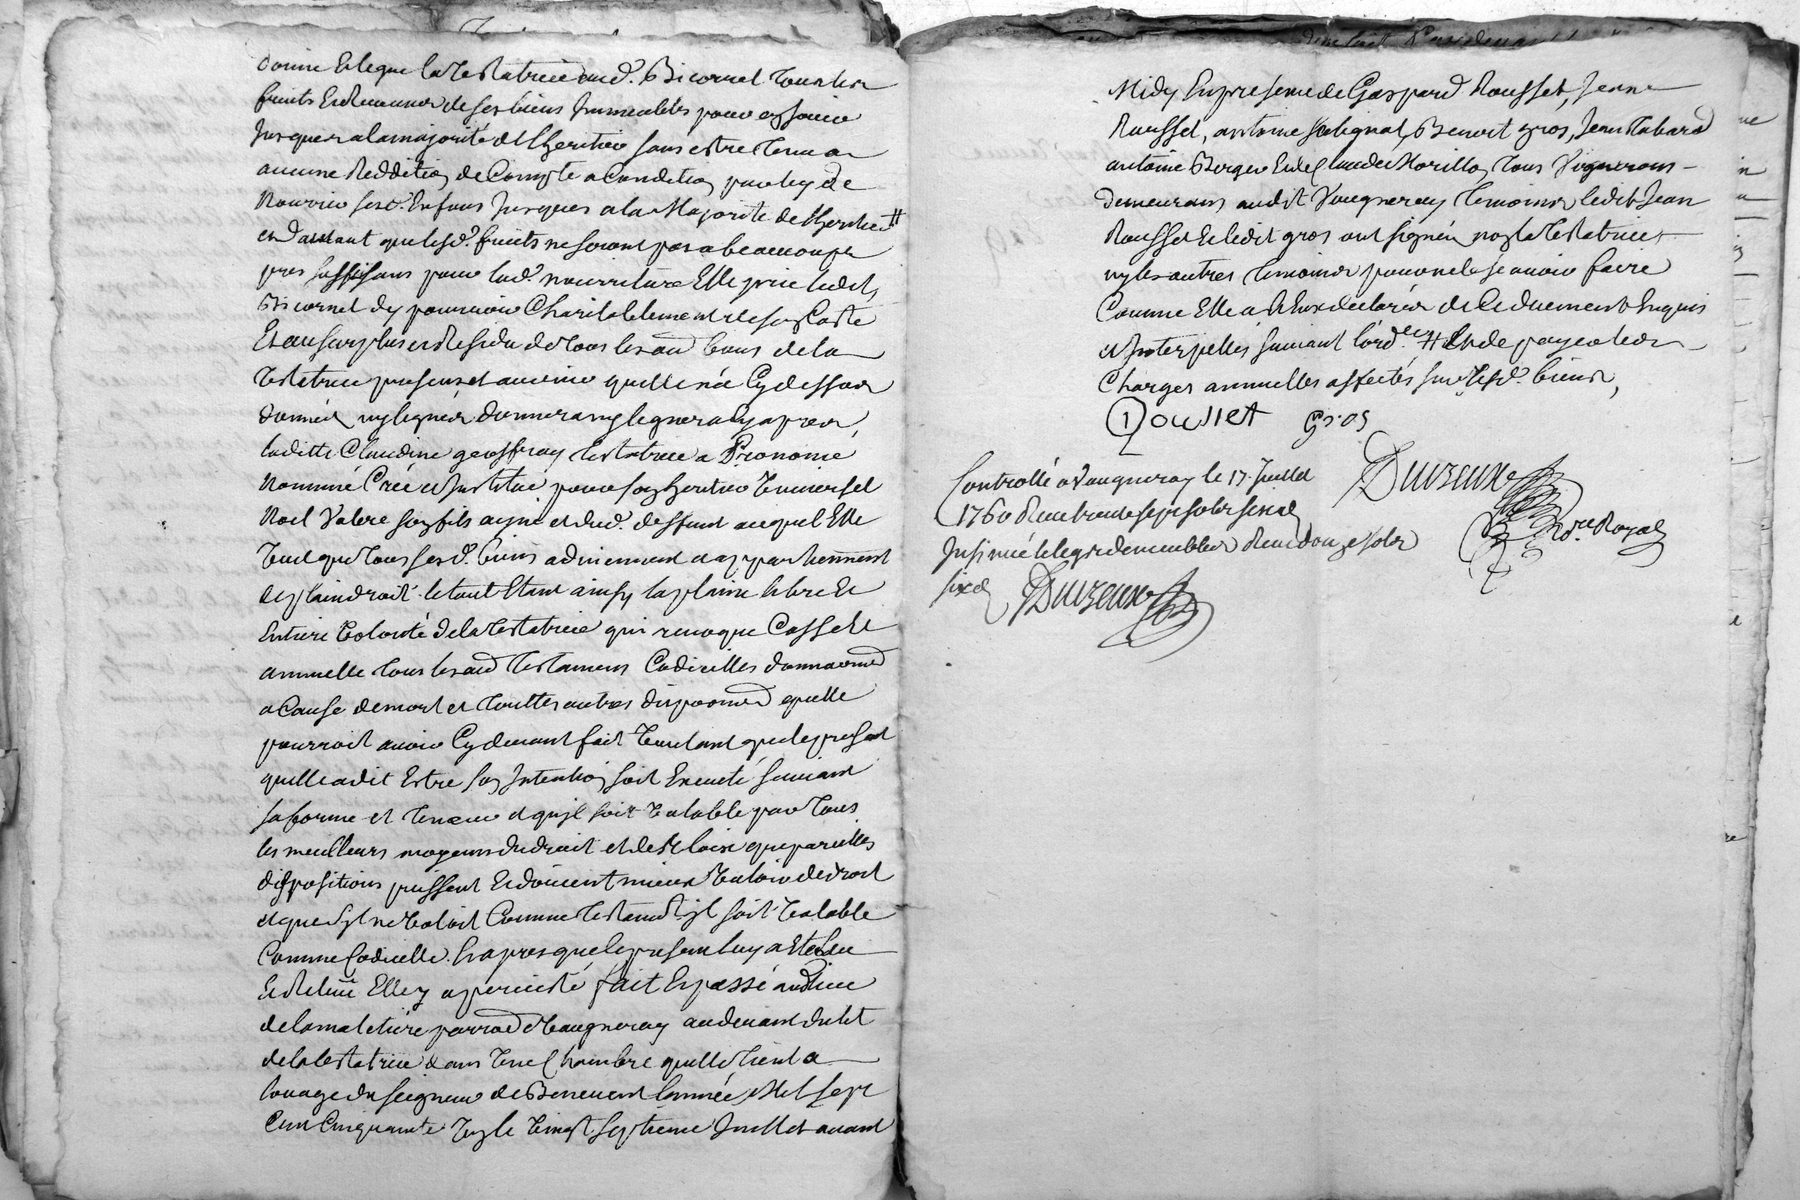 donne Et legue la Testatrice aud. Bicornet Tous les
fruits Et Revenus de ses biens Immeubles pour en jouir
Jusques a la majorité de L'heritier sans estre Tenu a
aucune Reddition de Compte a Condition par luy de
Nourrir sesd. Enfans Jusques a la Majorité de L'heritier #
et d'autant que lesd. fruits ne seront pas a beaucoup
pres suffisans pour lad. nourriture Elle prie ledit
Bicornet d'y pourvoir Charitablement de son Costé
Et au surplus et Residu de Tous les aut. biens de la
Testatrice presens et avenir quelle n'a Cy dessus
donnés ny legués donnera ny leguera Cy apres,
laditte Claudine geoffray Testatrice a
Nommé Créé et Institué pour son heritier Universel
Noel Valere son fils ayné et dud. deffunt auquel Elle
Veut que Tous sesd. biens adviennent et appartiennent
de plain droit le tout Etant ainsy la plaine libre Et
Entiere Volonté de la Testatrice qui revoque Casse Et
annulle Tous les aut Testamens Codicilles donnaons
a Cause de mort et Touttes autres dispoons quelle
pourroit avoir Cy devant fait Voulant que le present
quelle a dit Estre son Intention soit Executé suivant
sa forme et Teneur et qu'jl soit Valable par Tous
les meilleurs moyens du droit et des loix que pareilles
dispositions puissent Et doivent mieux Valoir de droit
et que s'jl ne Valoit Comme Testamt. jl soit Valable
Comme Codicille. Et apres que le present luy a Eté lu
Et Relu Elle y a persisté fait Et passé au lieu
de la maletiere parroisse de Vaugneray au devant du lit
de la Testatrice dans Une Chambre quelle Tient a
louage du seigneur de Benevent l'année Mil sept
Cent Cinquante Neuf le Vingt septieme Juillet avant
Midy En presence de Gaspard Rousset, Jean
Rousset, antoine Benoit gros, Jean Tabard
antoine Berger Et de Claude Morillon Tous Vignerons
demeurans audit Vaugneray Temoins ledit Jean
Rousset Et ledit gros ont signés non la Testatrice
ny les autres Temoins pour ne le sçavoir faire
Comme Elle a et Eux declarés de Ce duement Enquis
et Interpellés suivant l'ord.ce # Et de payer les
Charges annuelles affectés sur lesd. biens,
Rousset Gros
Controllé a Vaugneray le 17 Juillet
1760 Reçu trente sept sols six d
Insinué le legs de meubles Reçu douze sols
six d Duvzeux
Duvzeux
No.re Royal